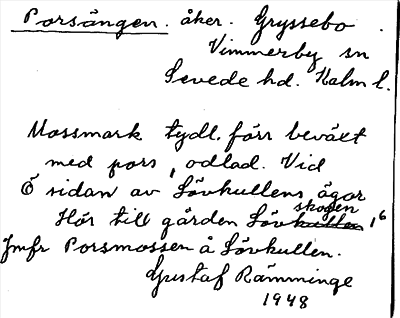 Porsängen. åker. Gryssebo.
Vimmerby sn
Sevede hd. Kalm l.
Mossmark tydl. förr beväxt
med pors, odlad. Vid
Ö sidan av Lövkullens ägor
Hör till gården Lövskogen 1⁶
Jmfr Porsmossen å Lövkullen.
Gustaf Rämminge
1948